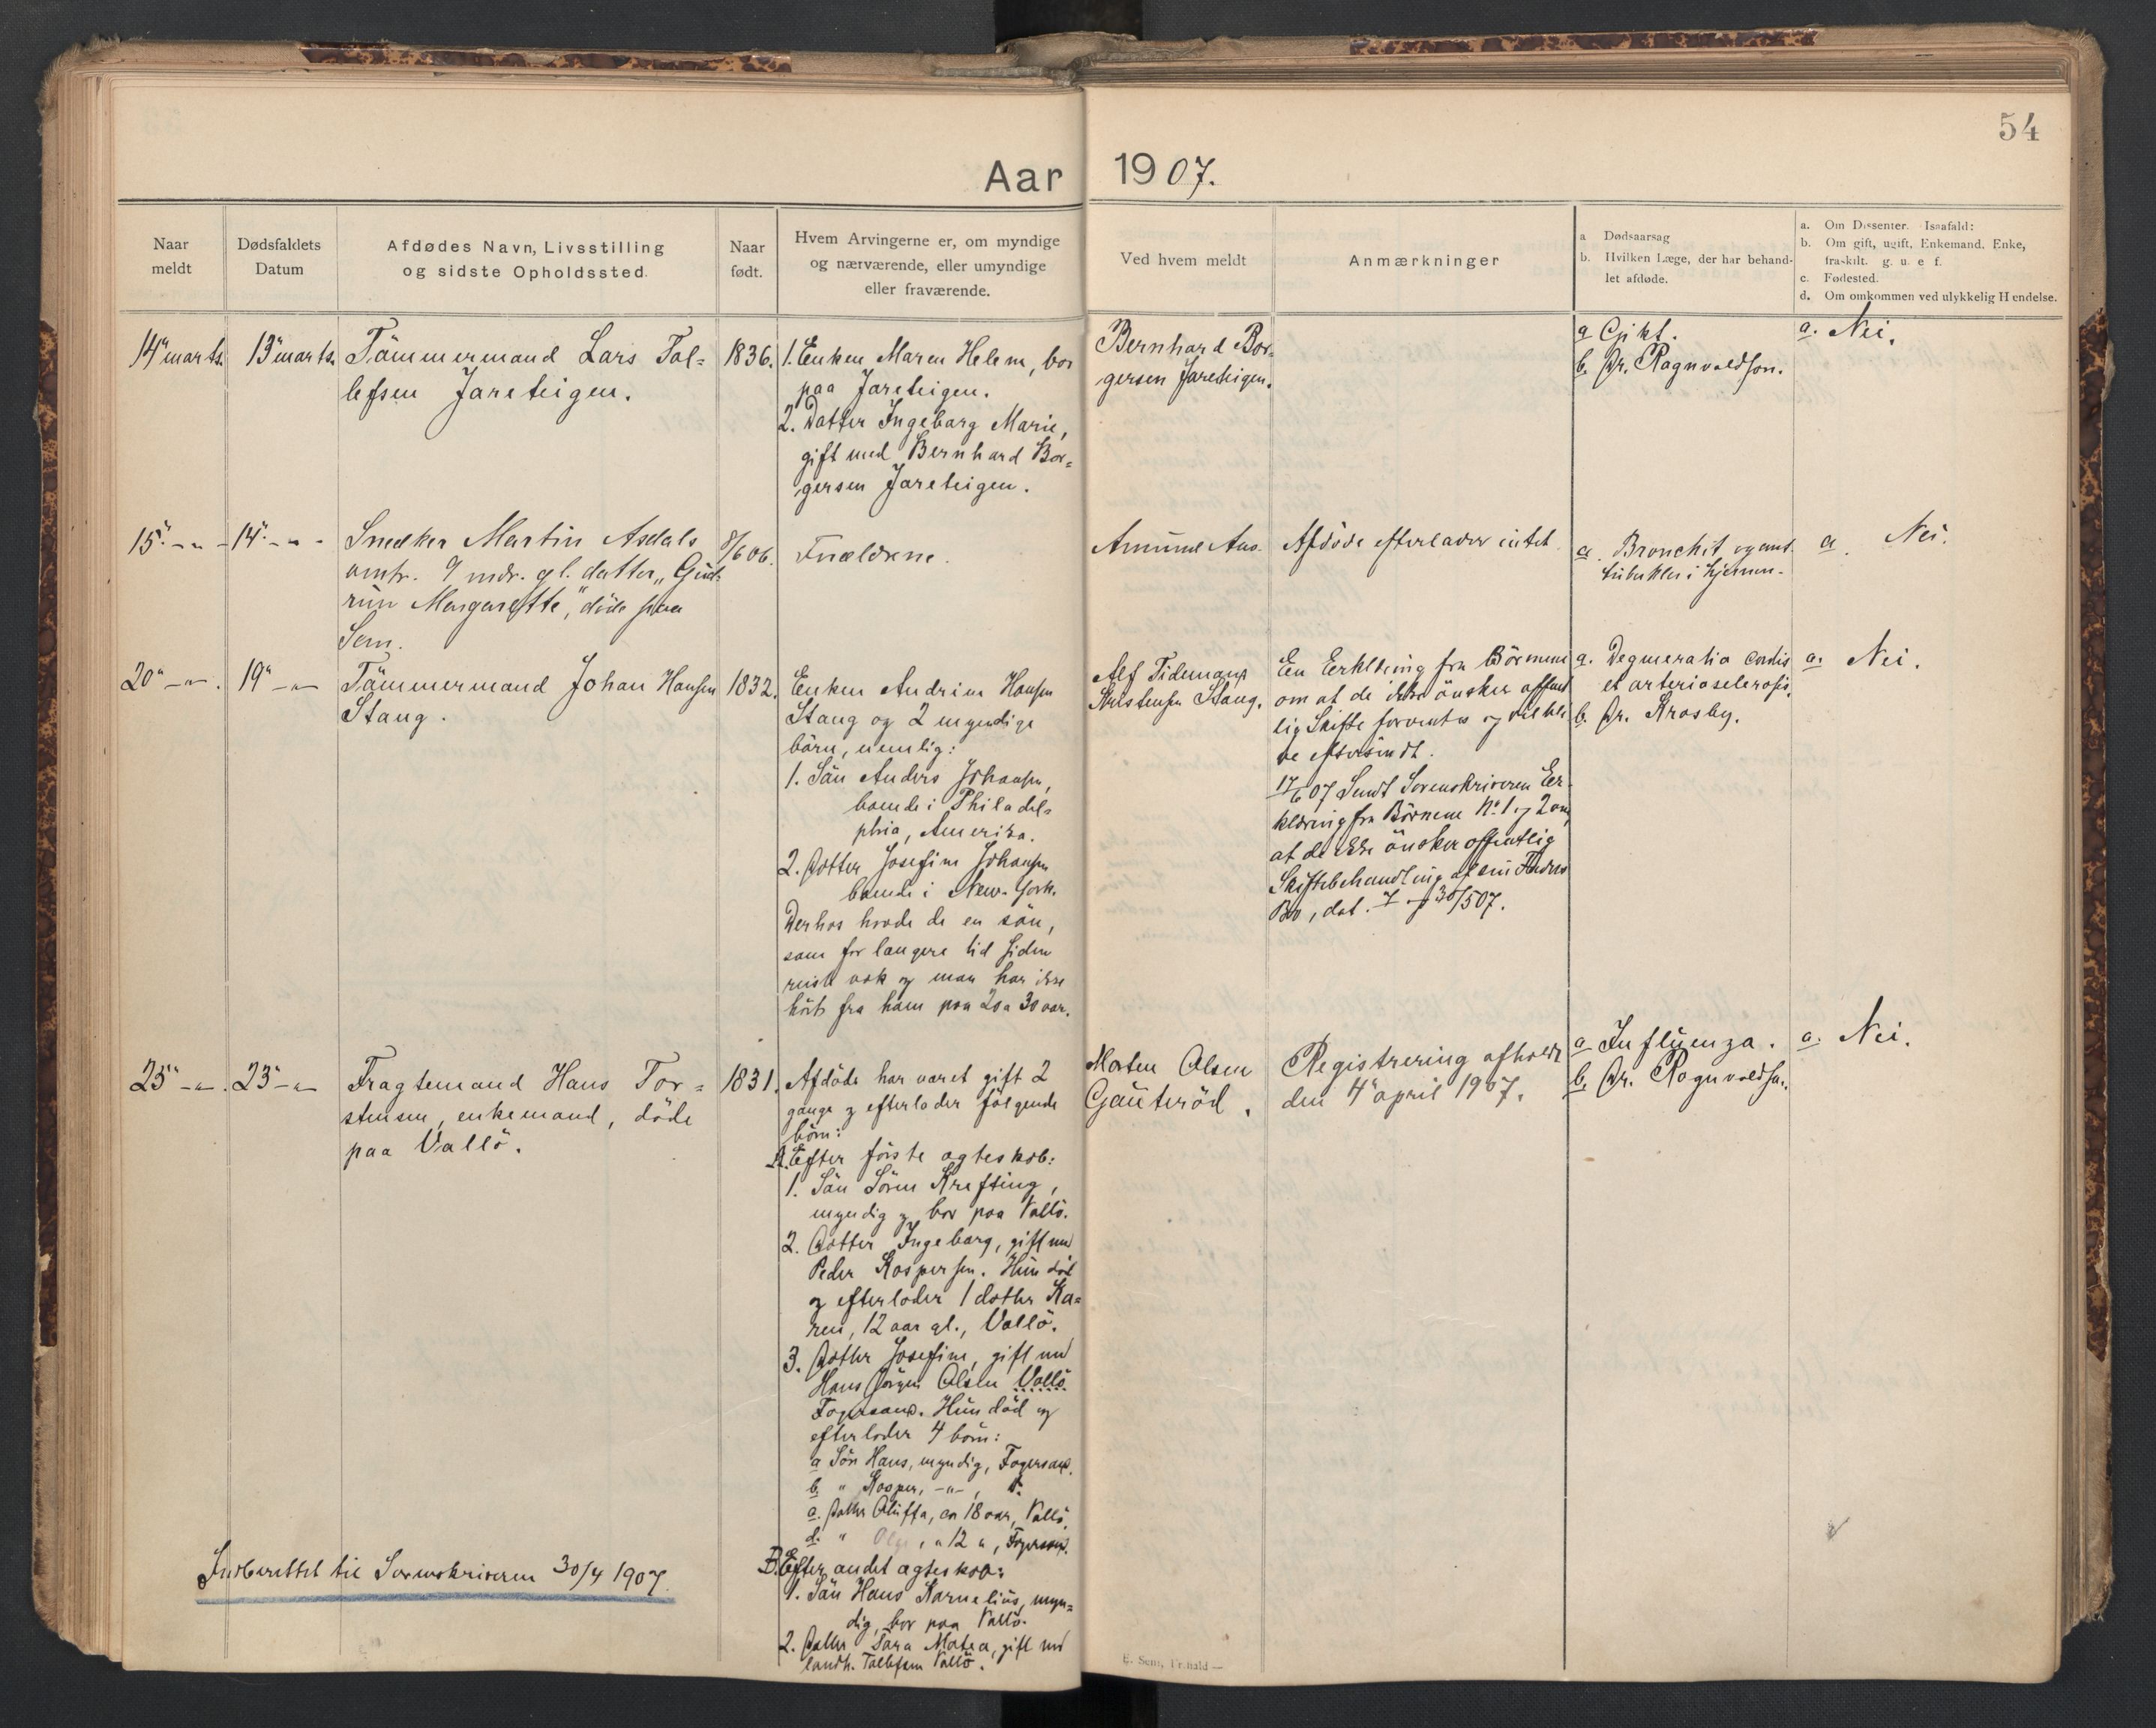 54
Aar 1907.
Naar
meldt
Dødsfaldets
Datum
Afdødes Navn, Livsstilling
og sidste Opholdssted.
Naar
født.
Hvem Arvingerne er, om myndige
og nærværende, eller umyndige
eller fraværende.
Ved hvem meldt
Anmærkninger
a Dødsaarsag
b. Hvilken Læge, der har behand-
let afdøde.
a. Om Dissenter. Isaafald:
b. Om gift, ugift, Enkemand, Enke,
fraskilt. g. u. e f.
c. Fødested.
d. Om omkommen ved ulykkelig Hendelse.
14" marts.
13" marts.
Tömmermand Lars Tol=
lefsen Jareteigen.
1836.
1. Enken Maren Helem, bor
paa Jareteigen.
2. Datter Ingeborg Marie,
gift med Bernhard Bor=
gersen Jareteigen.
Bernhard Bor=
gersen Jareteigen.
a
b. Dr. Ragnvaldson.
a. Nei.
15" - " -
14" - " -
Snedker Martin Asdals
omtr. 9 mdr. gl. datter "Gud=
run Margarethe", döde paa
Sem.
8/6 06.
Forældrene.
Afdöde efterlader intet.
a. Bronchit og ant.
tuberkler i hjernen.
a. Nei.
20" - " -
19" - " -
Tömmermand Johan Hansen
Stang.
1832.
Enken Andrine Hansen
Stang og 2 myndige
börn, nemlig:
1. Sön Anders Johansen,
boende i Philadel=
phia, Amerika.
2. Datter Josefine Johansen
boende i New-York.
Derhos havde de en sön,
som for længere tid siden
reiste væk og man har ikke
hört fra ham paa 20 a 30 aar.
Alf Tidemann
Kristensen Stang.
En Erklæring fra Börnene
om at de ikke önsker offent
lig Skifte forventes og vil bli
ve eftersendt.
17/6 07 Sendt Sorenskriveren Er-
klæring fra Börnene No. 1 og 2 om,
at de ikke önsker offentlig
Skiftebehandling af sin Faders
Bo, dat. 7 og 30/5 07.
a. Degeneratio cordis
et arteriosclerosis.
b. Dr. Krosby.
a. Nei.
25" - " -
23" - " -
Fragtemand Hans Tor=
stensen, enkemand, döde
paa Vallö.
1831.
Afdöde har været gift 2
gange og efterlader fölgende
börn:
A. Efter förste ægteskab:
1. Sön Sören Krefting,
myndig og bor paa Vallö.
2. Datter Ingeborg, gift med
Peder Kaspersen. Hun död
og efterlader 1 datter Ka=
ren, 12 aar gl., Vallö.
3. Datter Josefine, gift med
Hans Jörgen Olsen Vallö
Fogersand. Hun död og
efterlader 4 börn:
a Sön Hans, myndig, Fogersand.
b. " Kasper, - " -,
c. Datter Oluffa, ca 18 aar, Vallö,
d. " Olga, " 12 ", Fogersand.
B. Efter andet ægteskab:
1. Sön Hans Karnelius, myn=
dig, bor paa Vallö.
2. Datter Sara Matea, gift med
Tollefsen Vallö.
Morten Olsen
Gauteröd.
Registrering afholdt
den 4" april 1907.
a Influenza.
b. Dr. Ragnvaldson.
a. Nei.
Indberettet til Sorenskriveren 30/4 1907.
E. Sem, Fr.hald —